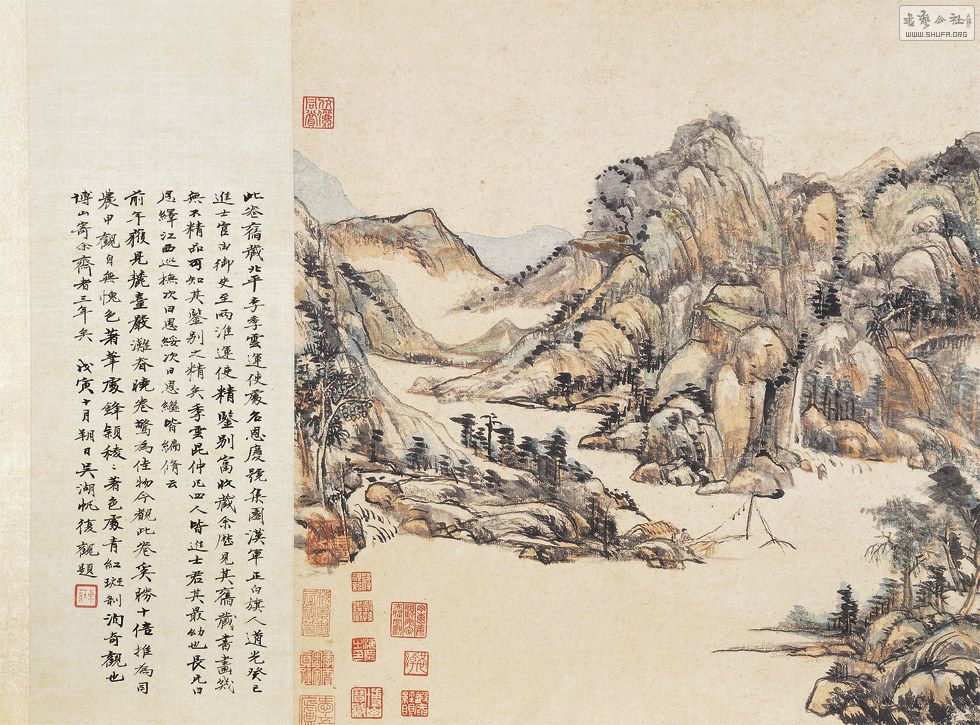 此卷舊藏北平李季雲運使處名恩慶號集園漢軍正白旗人道光癸巳
進士官由御史至兩淮運使精鑒別富收藏余歷見其舊藏書畫幾
無不精亦可知其鑒別之精矣季雲昆仲凡四人皆進士君其最幼也長兄曰
恩繹江西巡撫次曰恩綬次曰恩繼皆編脩云
前年獲見麓臺嚴灘春曉卷驚為佳物今觀此卷奚勝十倍推為同
農甲觀自無愧色著筆處鋒穎稜稜著色處青紅斑剝洵奇觀也
博山寄余齋者三年矣 戊寅十月朔日吳湖帆復觀題
WWW.SHUFA.ORG